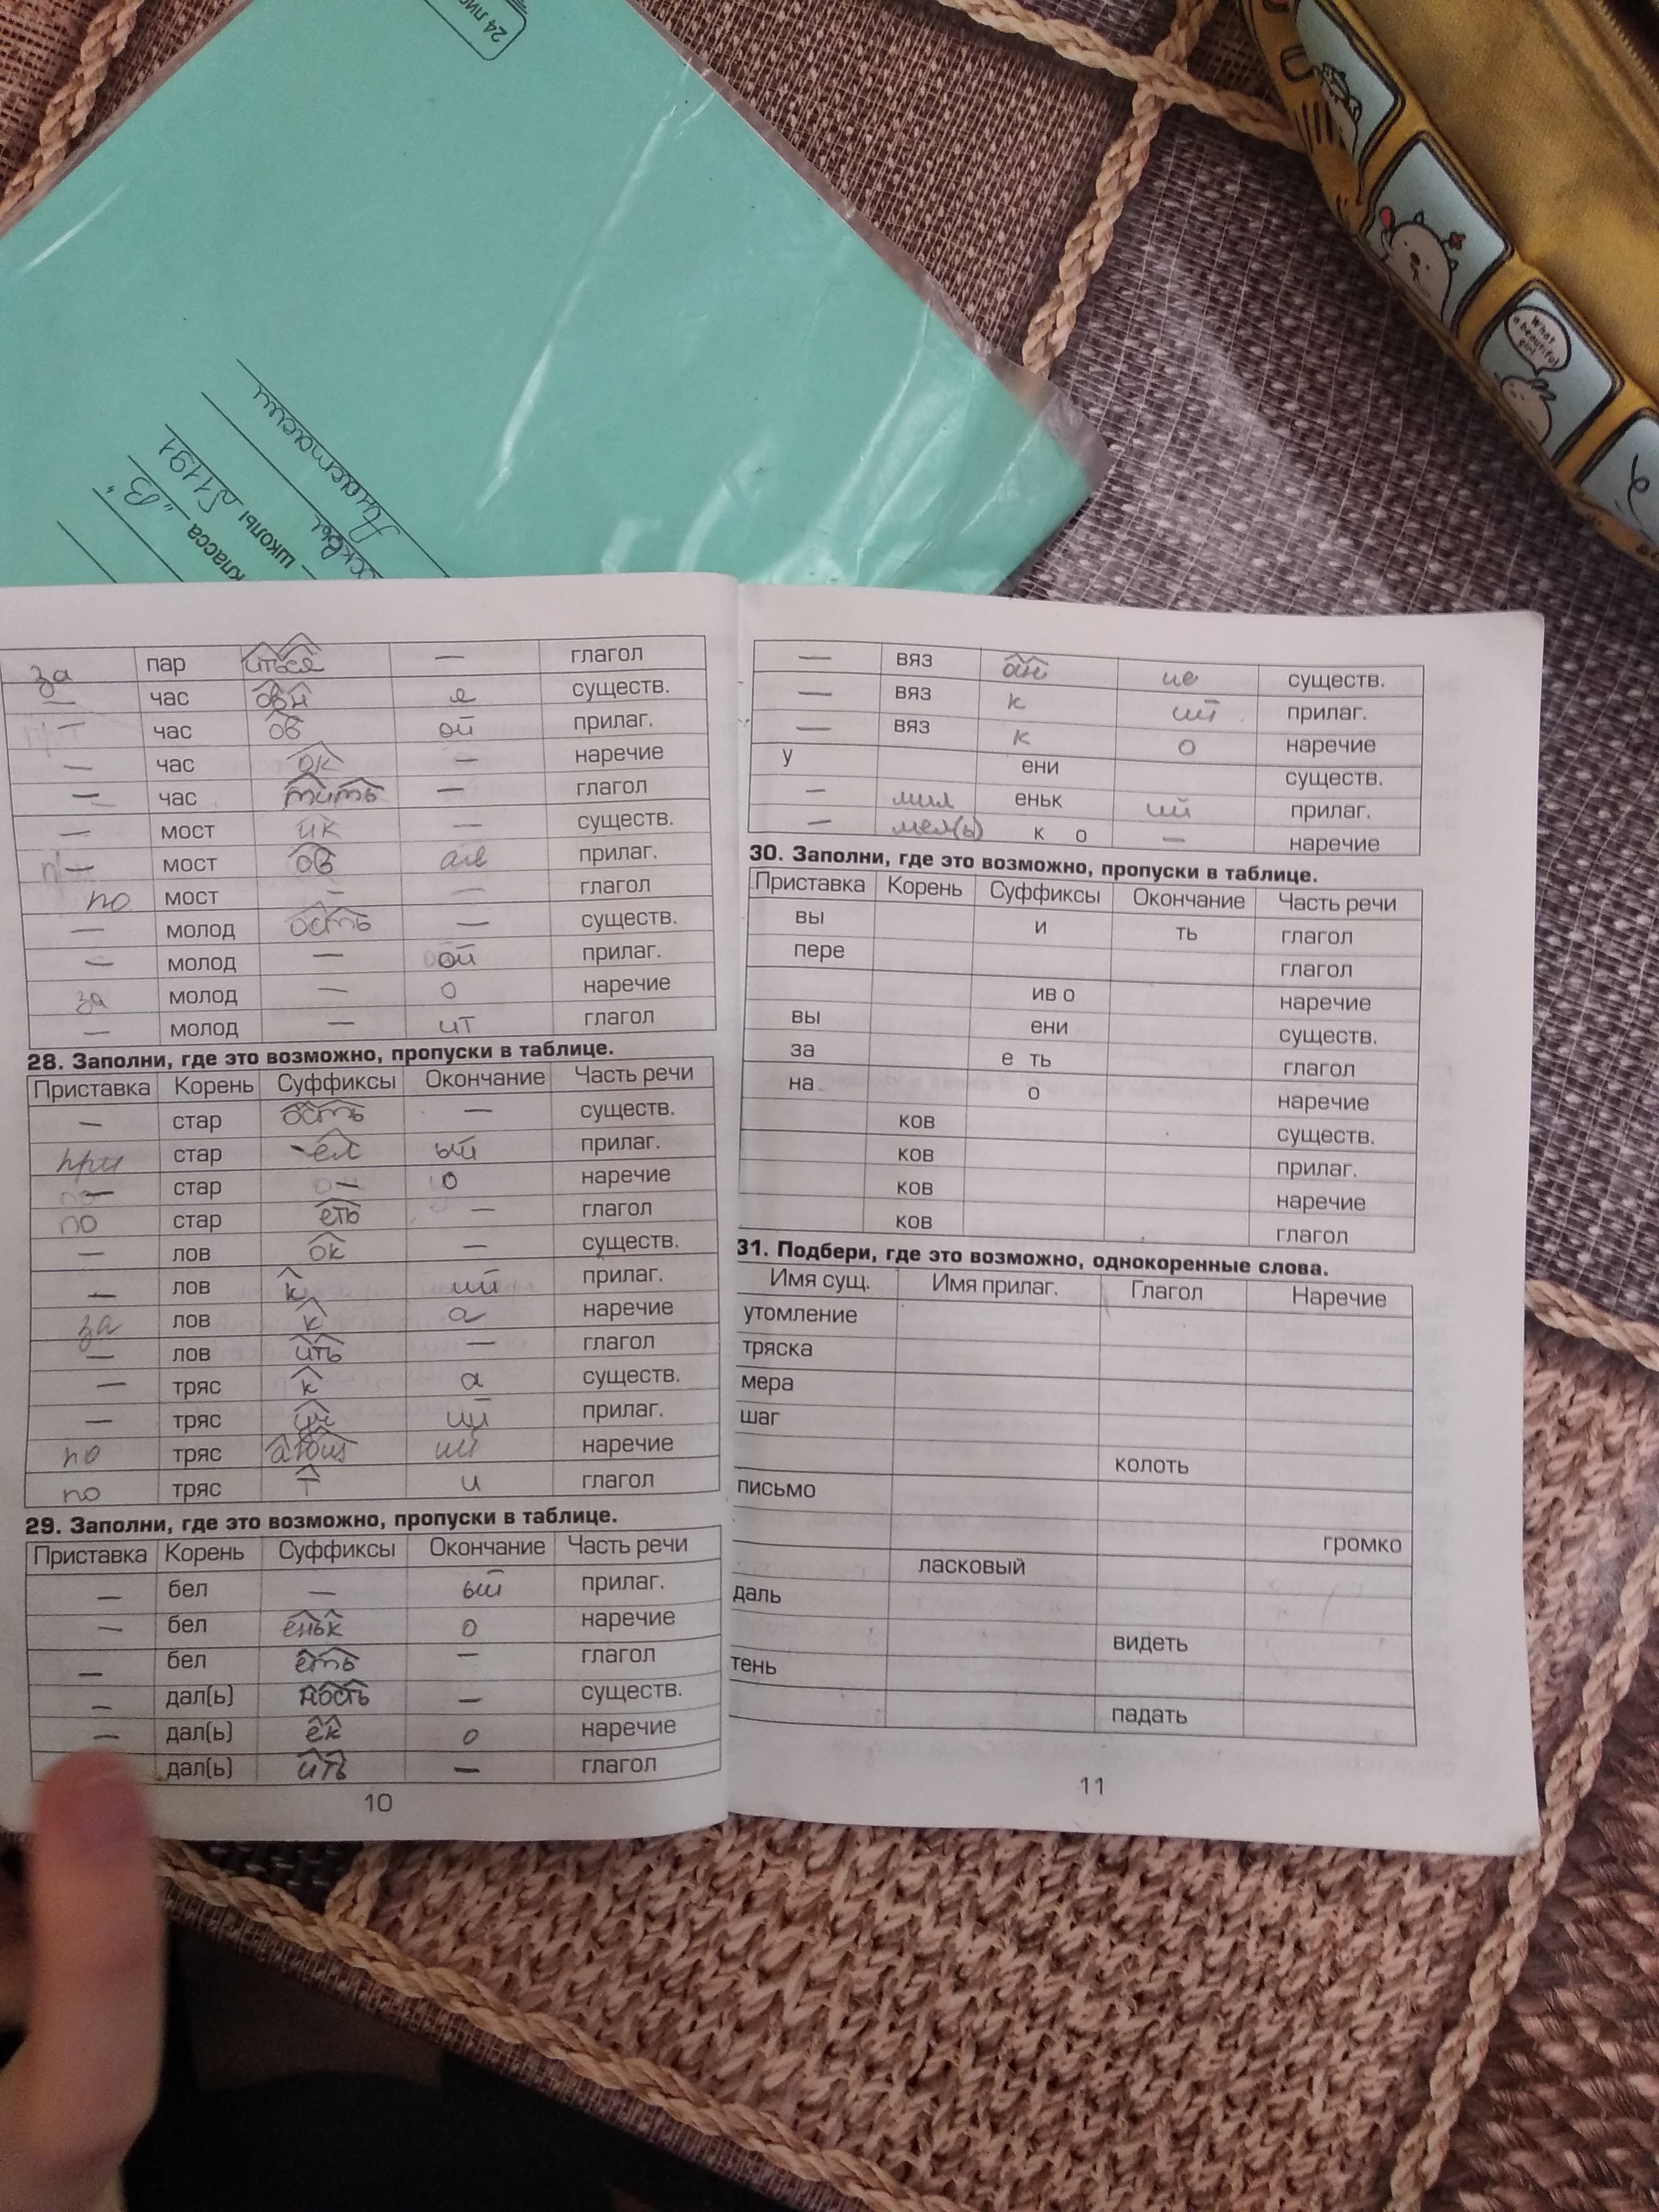 24
Анастасии
школы №1191
класса „В“
What a beautiful girl
за пар иться — глагол
— час овн я существ.
час ов ой прилаг.
— час ок — наречие
— час тить — глагол
— мост ик — существ.
— мост ов ая прилаг.
по мост — — глагол
— молод ость — существ.
— молод — ой прилаг.
за молод — о наречие
— молод — ит глагол
28. Заполни, где это возможно, пропуски в таблице.
Приставка Корень Суффиксы Окончание Часть речи
— стар ость — существ.
при стар ел ый прилаг.
— стар — о наречие
по стар еть — глагол
— лов ок — существ.
— лов к ий прилаг.
за лов к а наречие
— лов ить — глагол
— тряс к а существ.
— тряс уч ий прилаг.
по тряс ающ ий наречие
по тряс т и глагол
29. Заполни, где это возможно, пропуски в таблице.
Приставка Корень Суффиксы Окончание Часть речи
— бел — ый прилаг.
— бел еньк о наречие
— бел еть — глагол
— дал(ь) ность — существ.
— дал(ь) ек о наречие
дал(ь) ить — глагол
10
— вяз ан ие существ.
— вяз к ий прилаг.
— вяз к о наречие
у ени существ.
— мил еньк ий прилаг.
— мел(ь) к о — наречие
30. Заполни, где это возможно, пропуски в таблице.
Приставка Корень Суффиксы Окончание Часть речи
вы и ть глагол
пере глагол
ив о наречие
вы ени существ.
за е ть глагол
на о наречие
ков существ.
ков прилаг.
ков наречие
ков глагол
31. Подбери, где это возможно, однокоренные слова.
Имя сущ. Имя прилаг. Глагол Наречие
утомление
тряска
мера
шаг
колоть
письмо
громко
ласковый
даль
видеть
тень
падать
11